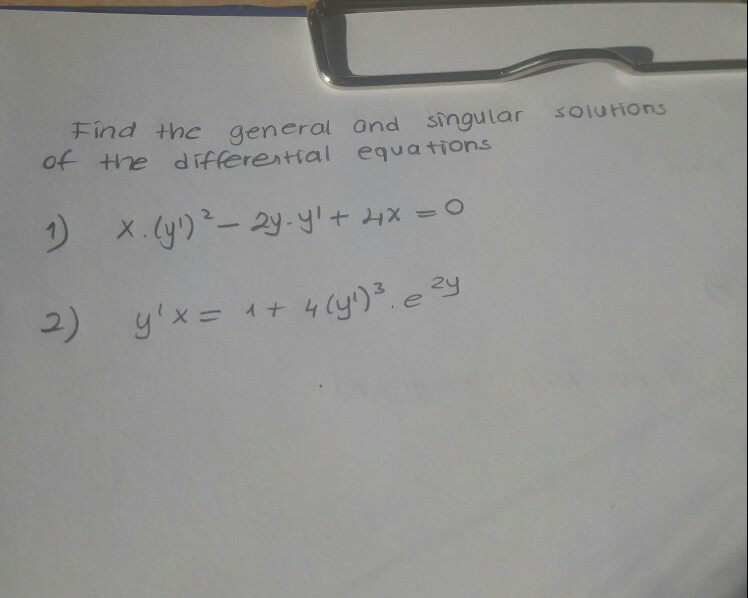 Find the general and singular solutions
of the differential equations
1) x.(y')² - 2y.y' + 4x = 0
2) y'x = 1 + 4(y')³.e^2y